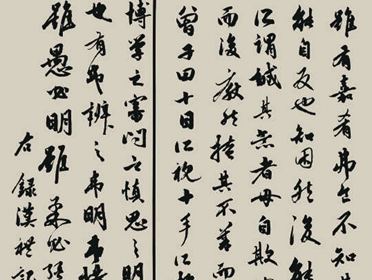 雖有嘉肴弗食不知
能自反也知困然後能
所謂誠其意者毋自欺
而後厭然揜其不善而
曾子曰十目所視十手所
博學之審問之慎思之明
也有弗辨之弗明弗措
雖愚必明雖柔必強
右錄漢禮記